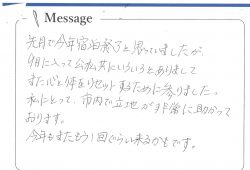 Message
先月で今年宿泊終了と思っていましたが、
9月に入って公私共にいろいろとありまして
また心と体をリセットするために参りました。
私にとって、市内で立地が非常に助かって
おります。
今年もまたもう1回ぐらい来るかもです。